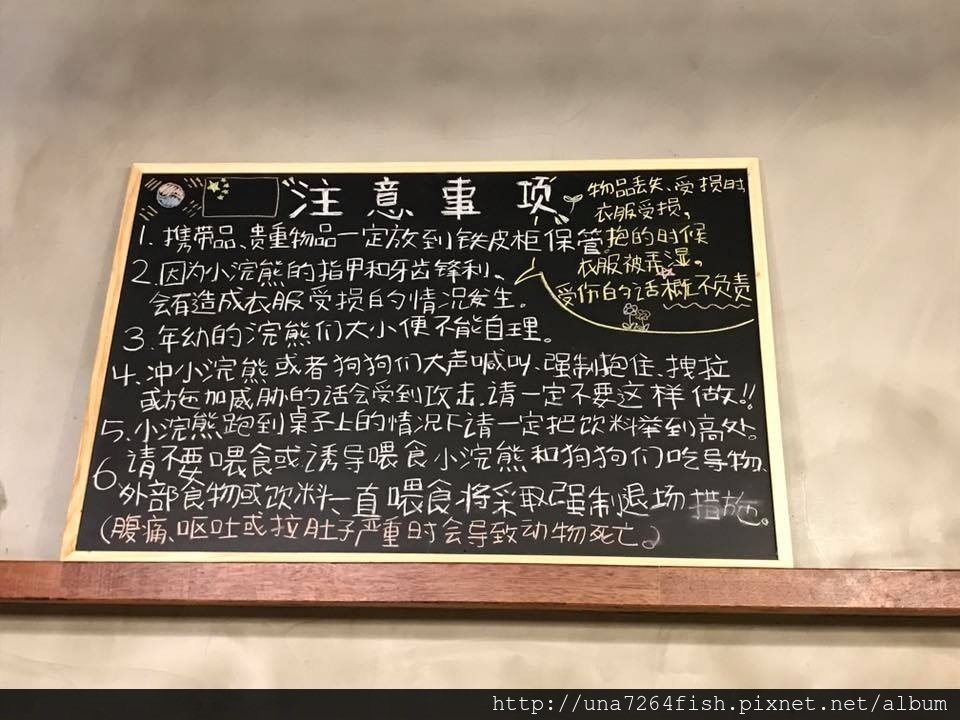 注意事项
物品丢失、受损时,
衣服受损,
1. 携带品、贵重物品一定放到铁皮柜保管。
抱的时候
衣服被弄湿。
受伤的话概不负责
2. 因为小浣熊的指甲和牙齿锋利、
会有造成衣服受损的情况发生。
3. 年幼的浣熊们大小便不能自理。
4. 冲小浣熊或者狗狗们大声喊叫、强制抱住、拽拉
或施加威胁的话会受到攻击.请一定不要这样做!!
5. 小浣熊跑到桌子上的情况下请一定把饮料举到高处。
6. 请不要喂食或诱导喂食小浣熊和狗狗们吃导物、
外部食物或饮料、一直喂食将采取强制退场措施。
(腹痛、呕吐或拉肚子严重时会导致动物死亡。)
http://una7264fish.pixnet.net/album